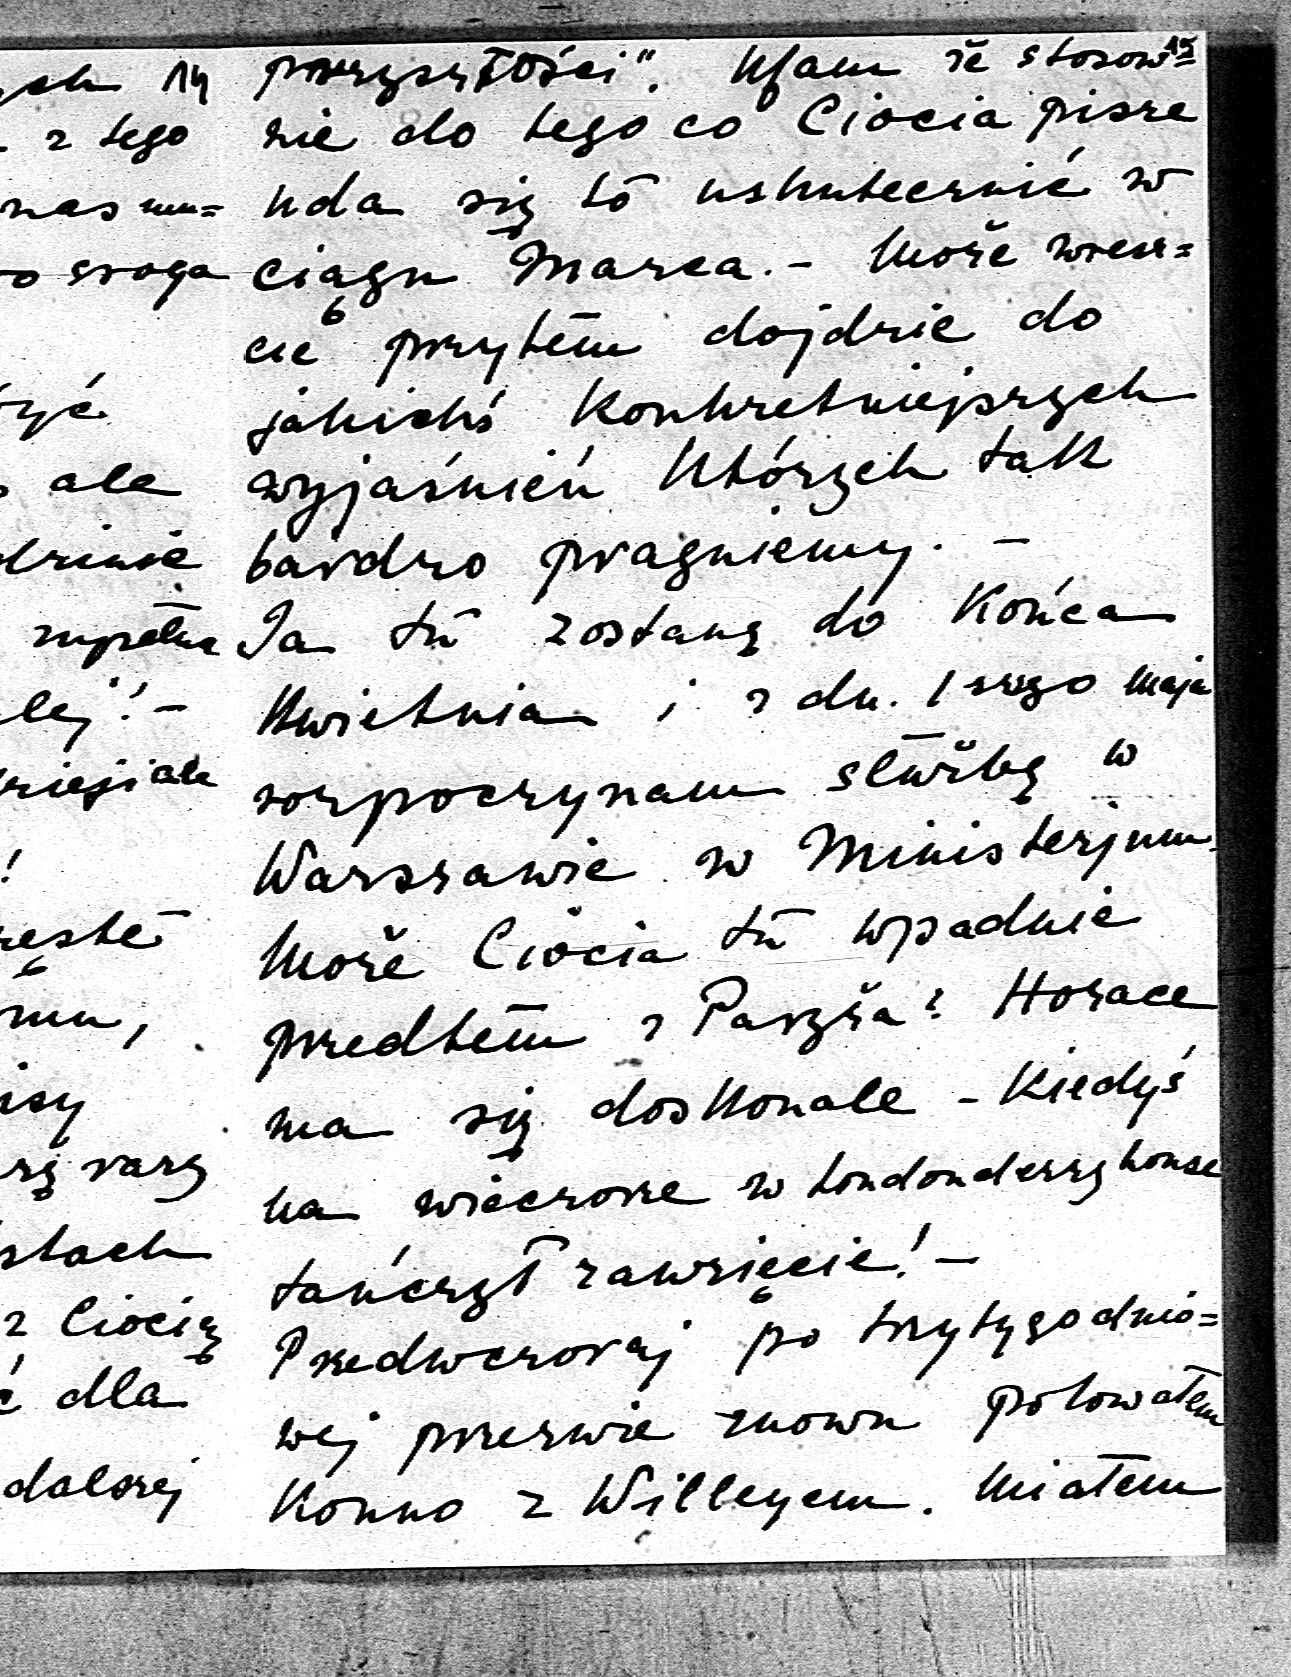 14
z tego
nas mu=
sroga
ale
zupełna
ale
!
razy
z Ciocią
dla
dalszej
15
przyszłości". Ufam że stosow=
nie do tego co Ciocia pisze
uda się to uskutecznić w
ciągu Marca. - Może wresz=
cie przytem dojdzie do
jakichś konkretniejszych
wyjaśnień których tak
bardzo pragniemy. -
Ja tu zostanę do Końca
Kwietnia i z dn. 1szego Maja
rozpoczynam służbę w
Warszawie w Ministerjum.
Może Ciocia tu wpadnie
przedtem z Paryża? Horace
ma się doskonale - Kiedyś
na wieczorze w Londonderry house
tańczył zawzięcie! -
Przedwczoraj po trzytygodnio=
wej przerwie znowu polowałem
Konno z Willeyem. Miałem